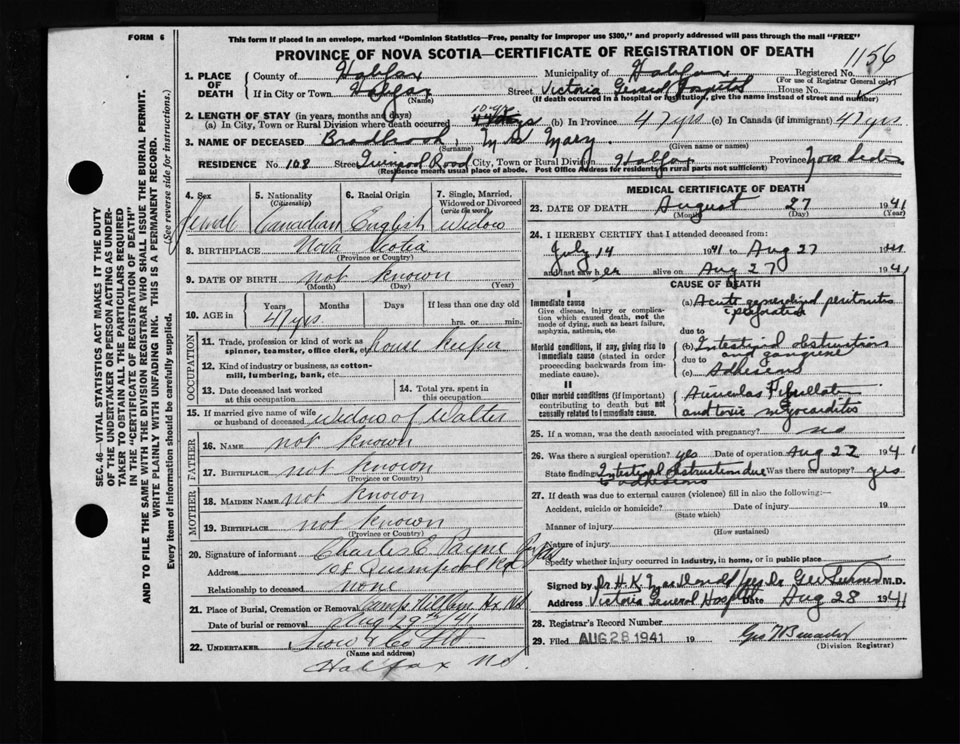 FORM 6
This form if placed in an envelope, marked "Dominion Statistics—Free, penalty for improper use $300," and properly addressed will pass through the mail "FREE"
PROVINCE OF NOVA SCOTIA—CERTIFICATE OF REGISTRATION OF DEATH
1156
1. PLACE OF DEATH
County of Halifax Municipality of Halifax Registered No.
(For use of Registrar General only)
If in City or Town Halifax Street Victoria General Hospital House No.
(Name) (If death occurred in a hospital or institution, give the name instead of street and number)
2. LENGTH OF STAY (in years, months and days)
(a) In City, Town or Rural Division where death occurred (b) In Province 47 yrs (c) In Canada (if immigrant) 47 yrs
3. NAME OF DECEASED Bradbrook, Mrs Mary
(Surname) (Given name or names)
RESIDENCE No 108 Street Quinpool Road City, Town or Rural Division Halifax Province Nova Scotia
(Residence means usual place of abode. Post Office Address for residents in rural parts not sufficient)
4. Sex
Female
5. Nationality
(Citizenship)
Canadian
6. Racial Origin
English
7. Single, Married, Widowed or Divorced
(write the word)
Widow
8. BIRTHPLACE Nova Scotia
(Province or Country)
9. DATE OF BIRTH not known
(Month) (Day) (Year)
10. AGE in
Years Months Days If less than one day old
47 yrs hrs. or min.
OCCUPATION
11. Trade, profession or kind of work as
spinner, teamster, office clerk, etc house keeper
12. Kind of industry or business, as cotton-
mill, lumbering, bank, etc.
13. Date deceased last worked
at this occupation
14. Total yrs. spent in
this occupation
15. If married give name of wife
or husband of deceased Widow of Walter
FATHER
16. NAME not known
17. BIRTHPLACE not known
(Province or Country)
MOTHER
18. MAIDEN NAME not known
19. BIRTHPLACE not known
(Province or Country)
20. Signature of informant Charles E. Payne
Address 108 Quinpool Rd
Relationship to deceased none
21. Place of Burial, Cremation or Removal Camp Hill Hx NS
Date of burial or removal Aug 29th/41
22. UNDERTAKER Snow & Co Ltd
(Name and address)
Halifax NS.
MEDICAL CERTIFICATE OF DEATH
23. DATE OF DEATH August 27 1941
(Month) (Day) (Year)
24. I HEREBY CERTIFY that I attended deceased from:
July 14 1941 to Aug 27 1941
and last saw her alive on Aug 27 1941
CAUSE OF DEATH
I
Immediate cause
Give disease, injury or complica-
tion which caused death, not the
mode of dying, such as heart failure,
asphyxia, asthenia, etc
(a) Acute generalized peritonitis
perforated
due to
Morbid conditions, if any, giving rise to
immediate cause (stated in order
proceeding backwards from im-
mediate cause).
(b) Intestinal obstruction
and gangrene
due to
(c) Adhesions
II
Other morbid conditions (if important)
contributing to death but not
causally related to immediate cause.
Auricular Fibrillation
and toxic myocarditis
25. If a woman, was the death associated with pregnancy? no
26. Was there a surgical operation? yes Date of operation Aug 22 1941
State findings Intestinal obstruction due to adhesions Was there an autopsy? yes
27. If death was due to external causes (violence) fill in also the following:—
Accident, suicide or homicide? Date of injury 19
(State which)
Manner of injury
(How sustained)
Nature of injury
Specify whether injury occurred in industry, in home, or in public place
Signed by Dr H. K. M.D.
Address Victoria General Hospital Date Aug 28 1941
28. Registrar's Record Number
29. Filed AUG 28 1941 19
(Division Registrar)
SEC. 46—VITAL STATISTICS ACT MAKES IT THE DUTY
OF THE UNDERTAKER OR PERSON ACTING AS UNDER-
TAKER TO OBTAIN ALL THE PARTICULARS REQUIRED
IN THE "CERTIFICATE OF REGISTRATION OF DEATH"
AND TO FILE THE SAME WITH THE DIVISION REGISTRAR WHO SHALL ISSUE THE BURIAL PERMIT.
WRITE PLAINLY WITH UNFADING INK. THIS IS A PERMANENT RECORD.
Every item of information should be carefully supplied. (See reverse side for instructions.)